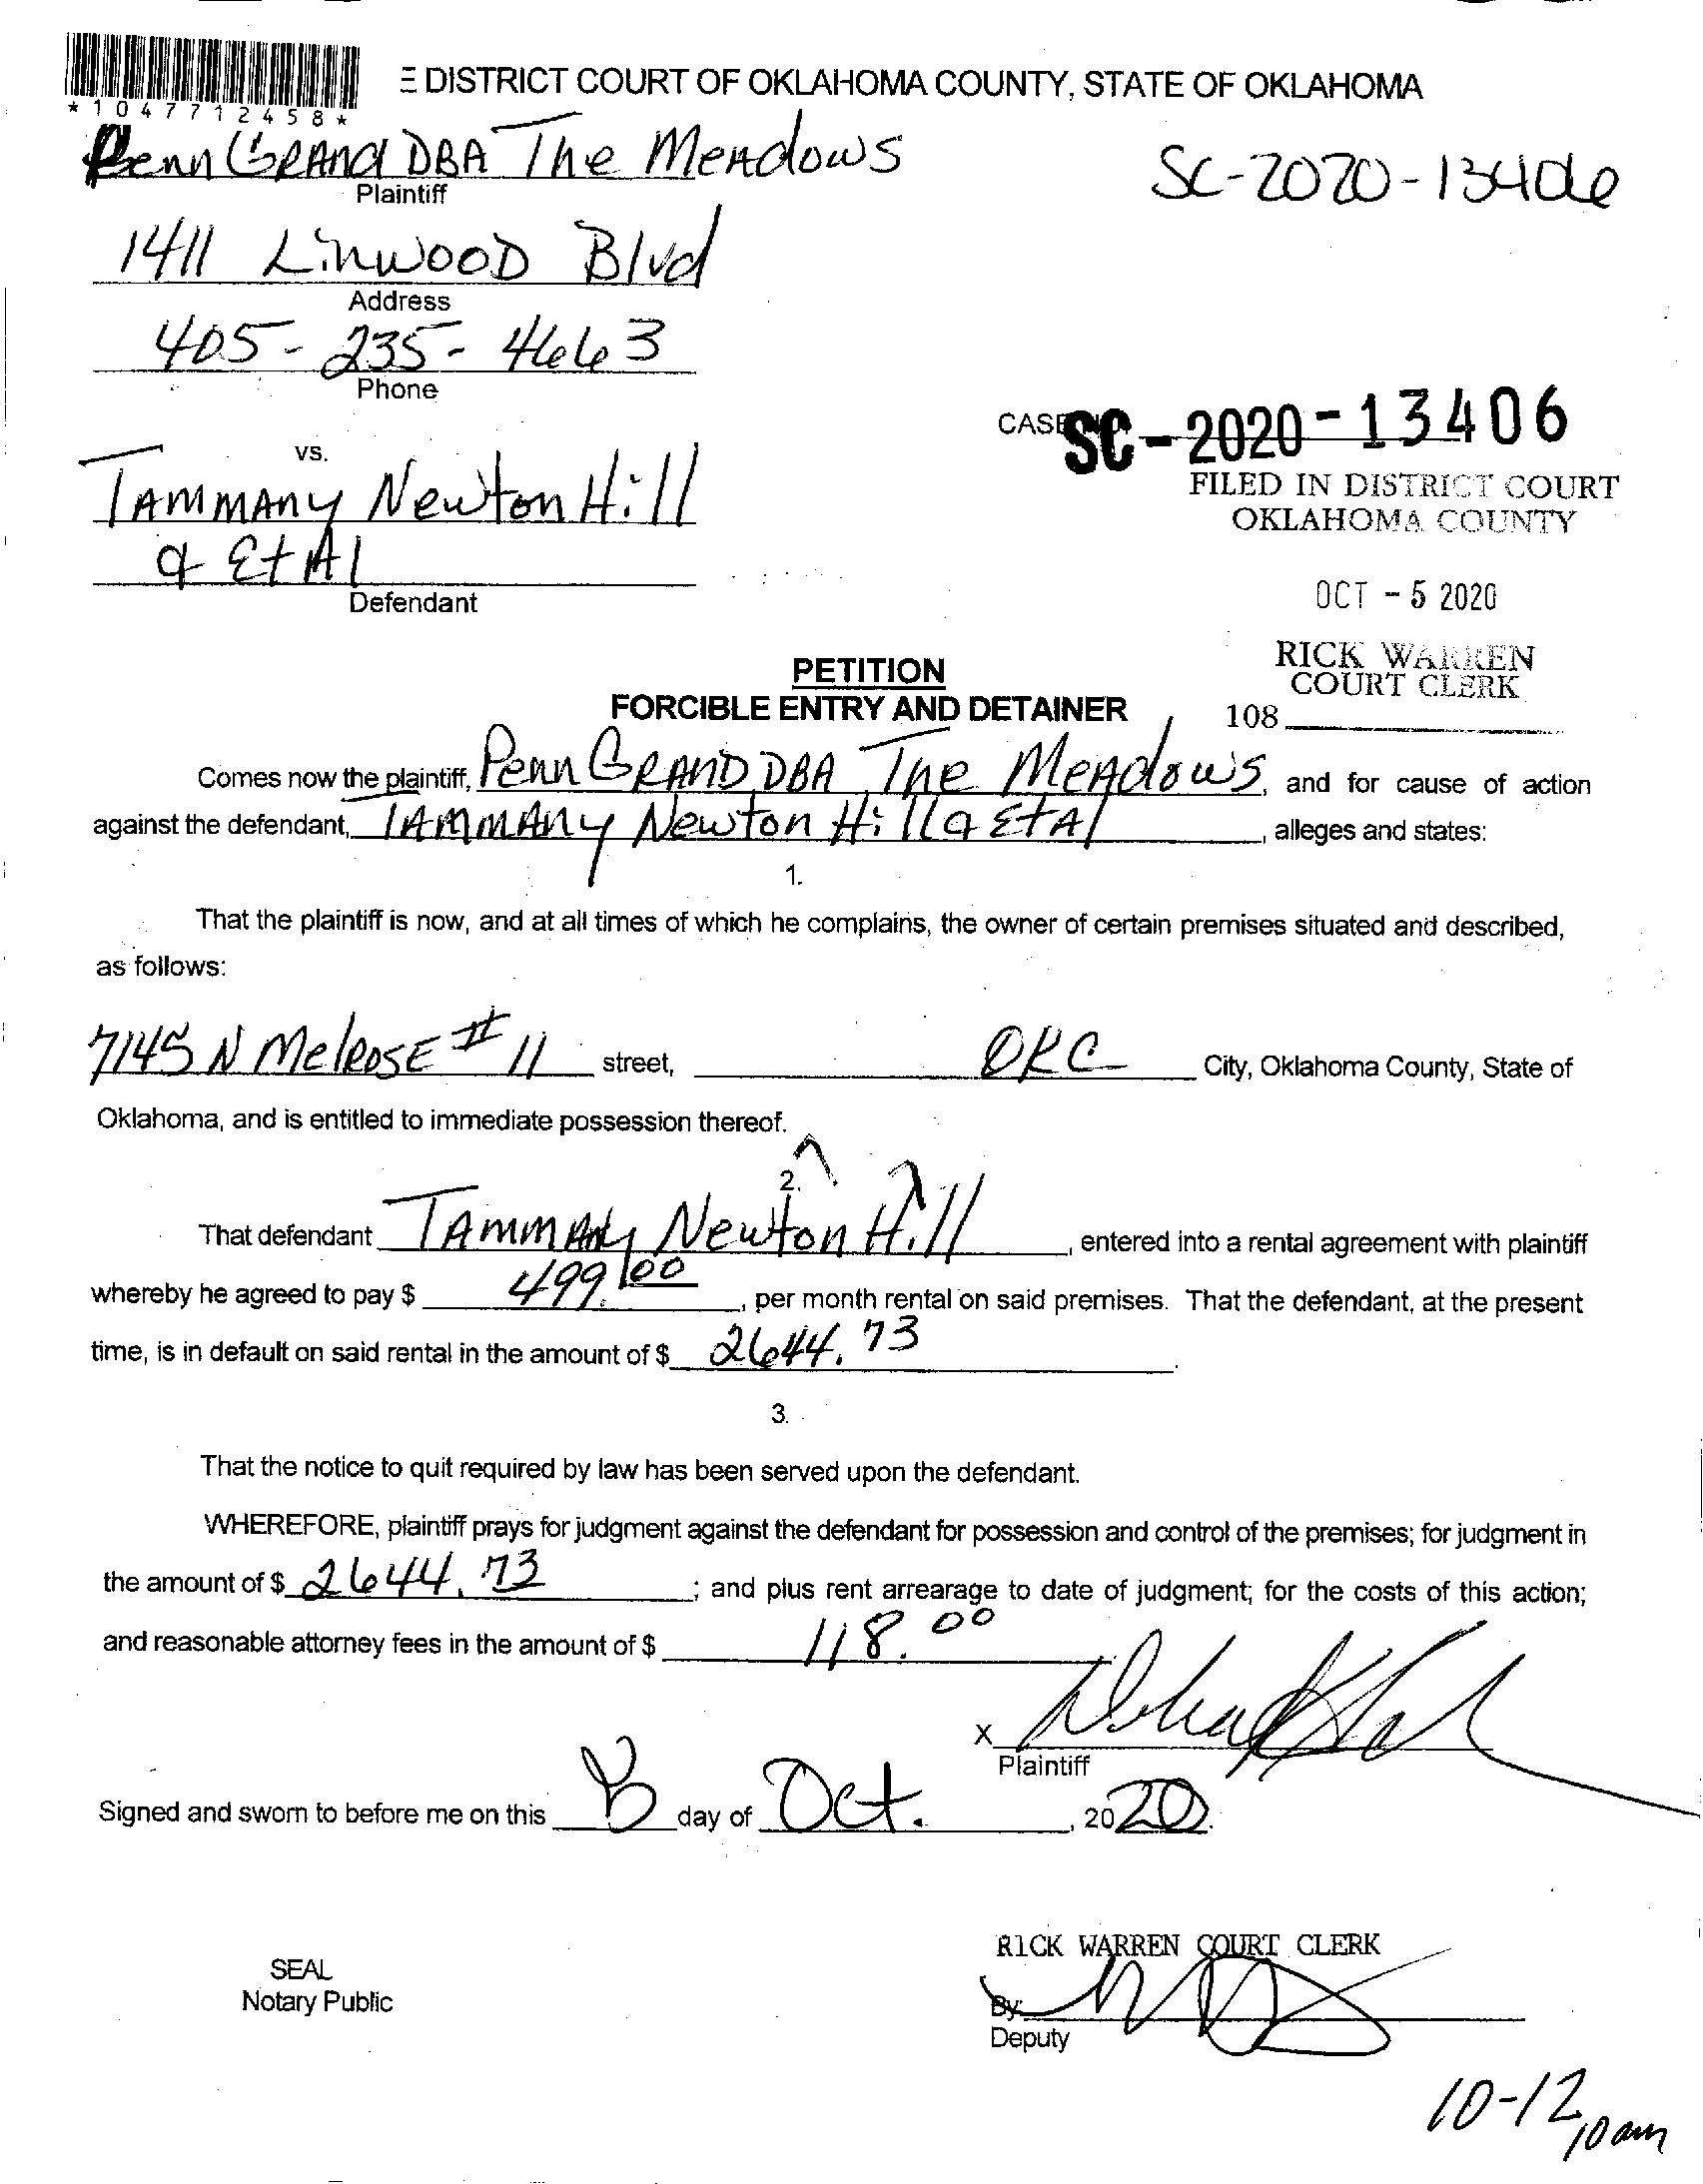 *1047712458*
E DISTRICT COURT OF OKLAHOMA COUNTY, STATE OF OKLAHOMA
Penn GRAnd DBA The MeAdows
Plaintiff
SC-2020-13406
1411 LinwooD Blvd
Address
405-235-4663
Phone
CASE SC-2020-13406
vs.
FILED IN DISTRICT COURT
OKLAHOMA COUNTY
TAMMAny Newton Hill
& Et Al
Defendant
OCT - 5 2020
RICK WARREN
COURT CLERK
108
PETITION
FORCIBLE ENTRY AND DETAINER
Comes now the plaintiff, Penn GRAND DBA The MeAdows, and for cause of action
against the defendant, TAMMAny Newton Hill & Et Al, alleges and states:
1.
That the plaintiff is now, and at all times of which he complains, the owner of certain premises situated and described,
as follows:
7145 N MelROSE # 11 street, OKC City, Oklahoma County, State of
Oklahoma, and is entitled to immediate possession thereof.
2.
That defendant TAMMAny Newton Hill, entered into a rental agreement with plaintiff
whereby he agreed to pay $ 499.00, per month rental on said premises. That the defendant, at the present
time, is in default on said rental in the amount of $ 2644.73.
3.
That the notice to quit required by law has been served upon the defendant.
WHEREFORE, plaintiff prays for judgment against the defendant for possession and control of the premises; for judgment in
the amount of $ 2644.73; and plus rent arrearage to date of judgment; for the costs of this action;
and reasonable attorney fees in the amount of $ 118.00
X
Plaintiff
Signed and sworn to before me on this day of Oct., 2020.
RICK WARREN COURT CLERK
SEAL
Notary Public
By:
Deputy
10-12
10 am